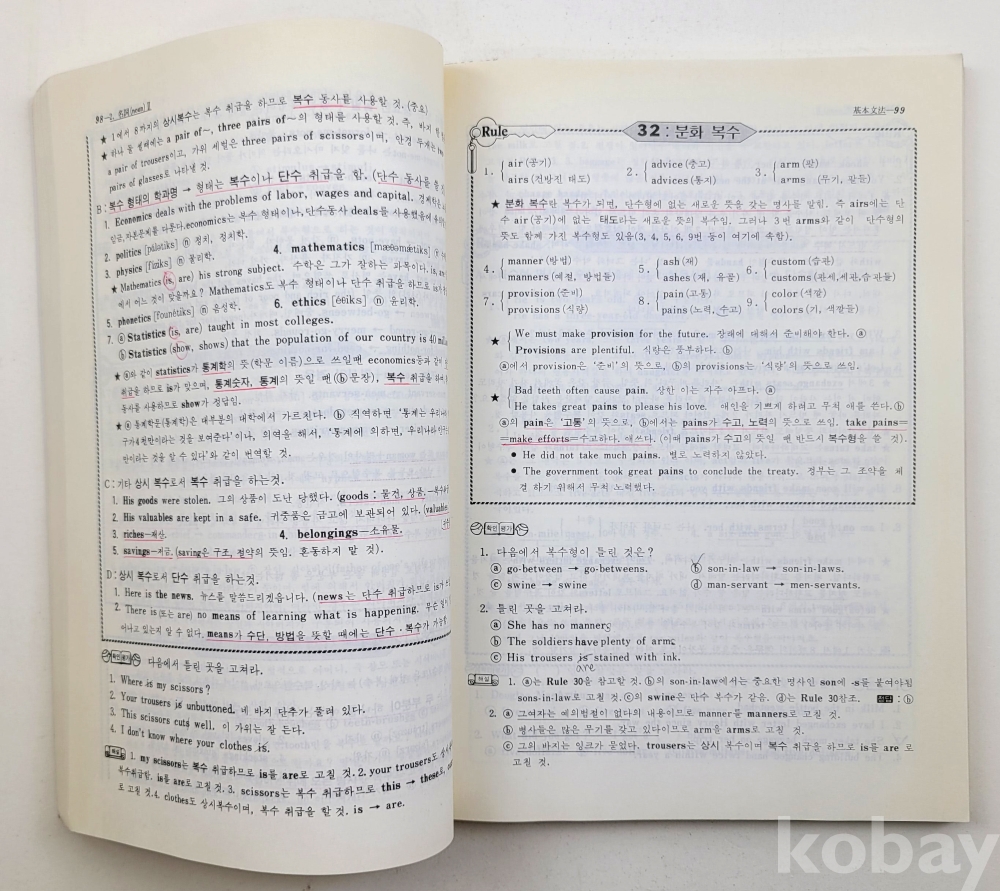 98—2. 名詞(noun) Ⅱ
★ 1에서 8까지의 상시복수는 복수 취급을 하므로 복수 동사를 사용할 것. (중요)
★ 하나 둘 셀때에는 a pair of~, three pairs of~의 형태를 사용할 것. 즉, 바지
a pair of trousers이고, 가위 세벌은 three pairs of scissors이며, 안경 두개는
pairs of glasses로 나타낼 것.
B : 복수 형태의 학과명 → 형태는 복수이나 단수 취급을 함. (단수 동사를
1. Economics deals with the problems of labor, wages and capital. 경제학은
임금, 자본문제를 다룬다. economics는 복수 형태이나, 단수동사 deals를 사용했음에
2. politics [pálətiks] ⓝ 정치, 정치학.
3. physics [fíziks] ⓝ 물리학.
4. mathematics [mæ̀θəmǽtiks]
★ Mathematics (is, are) his strong subject. 수학은 그가 잘하는 과목이다. is, are
에서 어느 것이 맞을까요? Mathematics도 복수 형태이나 단수 취급을 하므로 is가
5. phonetics [founétiks] ⓝ 음성학.
6. ethics [éθiks] ⓝ 윤리학.
7. ⓐ Statistics (is, are) taught in most colleges.
ⓑ Statistics (show, shows) that the population of our country is 40
★ ⓐ와 같이 statistics가 통계학의 뜻(학문 이름)으로 쓰일땐 economics등과 같이
취급을 하므로 is가 맞으며, 통계숫자, 통계의 뜻일 땐(ⓑ문장), 복수 취급을 하여
동사를 사용하므로 show가 정답임.
★ ⓐ 통계학은(통계학)은 대부분의 대학에서 가르친다. ⓑ 직역하면 '통계는 우리나라
구가 4천만이라는 것을 보여준다'이나, 의역을 해서, '통계에 의하면, 우리나라 인구는
만이라는 것을 알 수 있다'와 같이 번역할 것.
C : 기타 상시 복수로서 복수 취급을 하는것.
1. His goods were stolen. 그의 상품이 도난 당했다. (goods : 물건, 상품.
2. His valuables are kept in a safe. 귀중품은 금고에 보관되어 있다. (valuable
3. riches—재산.
4. belongings—소유물.
5. savings—저금. (saving은 구조, 절약의 뜻임. 혼동하지 말 것).
D : 상시 복수로서 단수 취급을 하는것.
1. Here is the news. 뉴스를 말씀드리겠읍니다. (news는 단수 취급하므로 is가
2. There is (또는 are) no means of learning what is happening. 무슨 일이
어나고 있는지 알 수 없다. means가 수단, 방법을 뜻할 때에는 단수·복수가 가능
확인 평가 다음에서 틀린 곳을 고쳐라.
1. Where is my scissors?
2. Your trousers is unbuttoned. 네 바지 단추가 풀려 있다.
3. This scissors cuts well. 이 가위는 잘 든다.
4. I don't know where your clothes is.
해설 1. my scissors는 복수 취급하므로 is를 are로 고칠 것. 2. your trousers도
복수취급함. is를 are로 고칠 것. 3. scissors는 복수 취급하므로 this → these로,
로 고칠 것. 4. clothes도 상시복수이며, 복수 취급을 할 것. is → are.
基本文法—99
Rule
32 : 분화 복수
1. { air (공기)
airs (건방진 태도)
2. { advice (충고)
advices (통지)
3. { arm (팔)
arms (무기, 팔들)
★ 분화 복수란 복수가 되면, 단수형에 없는 새로운 뜻을 갖는 명사를 말함. 즉 airs에는 단
수 air(공기)에 없는 태도라는 새로운 뜻의 복수임. 그러나 3번 arms와 같이 단수형의
뜻도 함께 가진 복수형도 있음(3, 4, 5, 6, 9번 등이 여기에 속함).
4. { manner (방법)
manners (예절, 방법들)
5. { ash (재)
ashes (재, 유골)
6. { custom (습관)
customs (관세, 세관, 습관들)
7. { provision (준비)
provisions (식량)
8. { pain (고통)
pains (노력, 수고)
9. { color (색깔)
colors (기, 색깔들)
★ { We must make provision for the future. 장래에 대해서 준비해야 한다. ⓐ
Provisions are plentiful. 식량은 풍부하다. ⓑ
ⓐ에서 provision은 '준비'의 뜻으로, ⓑ의 provisions는 '식량'의 뜻으로 쓰임.
★ { Bad teeth often cause pain. 상한 이는 자주 아프다. ⓐ
He takes great pains to please his love. 애인을 기쁘게 하려고 무척 애를 쓴다. ⓑ
ⓐ의 pain은 '고통'의 뜻으로, ⓑ에서는 pains가 수고, 노력의 뜻으로 쓰임. take pains=
=make efforts=수고하다. 애쓰다. (이때 pains가 수고의 뜻일 땐 반드시 복수형을 쓸 것).
• He did not take much pains. 별로 노력하지 않았다.
• The government took great pains to conclude the treaty. 정부는 그 조약을 체
결 하기 위해서 무척 노력했다.
확인 평가
1. 다음에서 복수형이 틀린 것은?
ⓐ go-between → go-betweens.
ⓑ son-in-law → son-in-laws.
ⓒ swine → swine
ⓓ man-servant → men-servants.
2. 틀린 곳을 고쳐라.
ⓐ She has no manner.
ⓑ The soldiers have plenty of arm.
ⓒ His trousers is stained with ink.
are
해설 1. ⓐ는 Rule 30을 참고할 것. ⓑ의 son-in-law에서는 중요한 명사인 son에 -s를 붙여야됨
sons-in-law로 고칠 것. ⓒ의 swine은 단수 복수가 같음. ⓓ는 Rule 30참조. 정답 : ⓑ
2. ⓐ 그여자는 예의범절이 없다의 내용이므로 manner를 manners로 고칠 것.
ⓑ 병사들은 많은 무기를 갖고 있다이므로 arm을 arms로 고칠 것.
ⓒ 그의 바지는 잉크가 묻었다. trousers는 상시 복수이며 복수 취급을 하므로 is를 are 로
고칠 것.
kobay